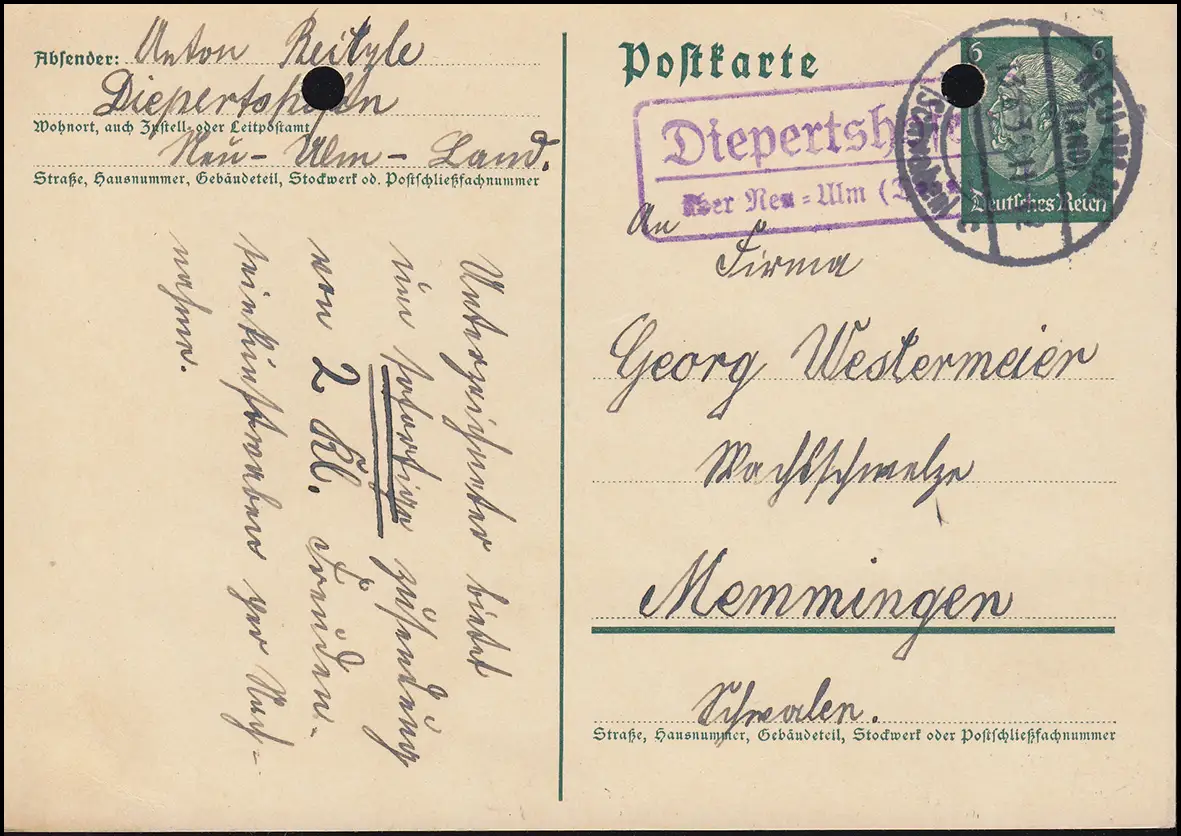 Absender: Anton Reitzle
Diepertshofen
Wohnort, auch Zustell- oder Leitpostamt
Neu-Ulm-Land.
Straße, Hausnummer, Gebäudeteil, Stockwerk od. Postschließfachnummer
Unterzeichneter bietet
um sofortige zusendung
von 2 Kl.
per Nach-
nahme.
Postkarte
Diepertshofe
über Neu=Ulm (Land
6 6
Deutsches Reich
NEU-ULM
(LAND)
An
Firma
Georg Westermeier
Wachsschmelze
Memmingen
Schwaben.
Straße, Hausnummer, Gebäudeteil, Stockwerk oder Postschließfachnummer